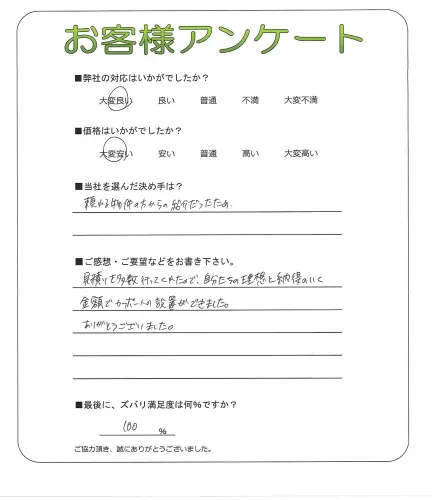 お客様アンケート
■弊社の対応はいかがでしたか？
大変良い　良い　普通　不満　大変不満
■価格はいかがでしたか？
大変安い　安い　普通　高い　大変高い
■当社を選んだ決め手は？
物件の方からの紹介だったため.
■ご感想・ご要望などをお書き下さい。
見積りを多数行ってくれたので、自分たちの理想と納得のいく
金額でカーポートの設置ができました。
ありがとうございました。
■最後に、ズバリ満足度は何％ですか？
100 ％
ご協力頂き、誠にありがとうございました。